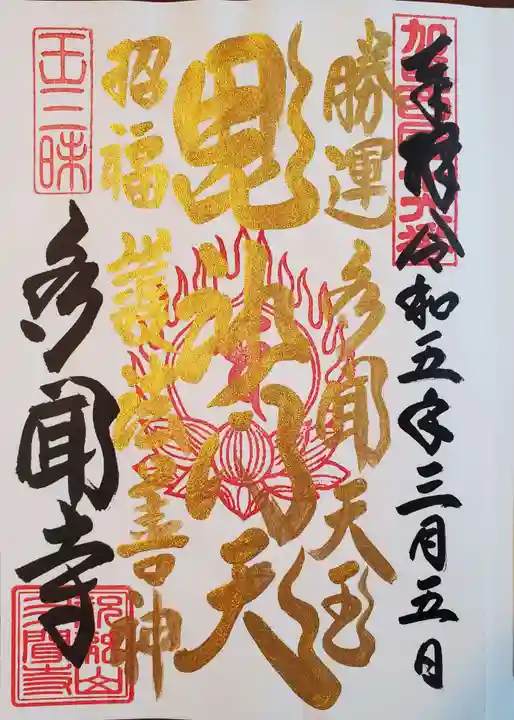 奉拝
令和五年三月五日
勝運 多聞天王
毘沙門天
招福 護法善神
王三昧
多聞寺